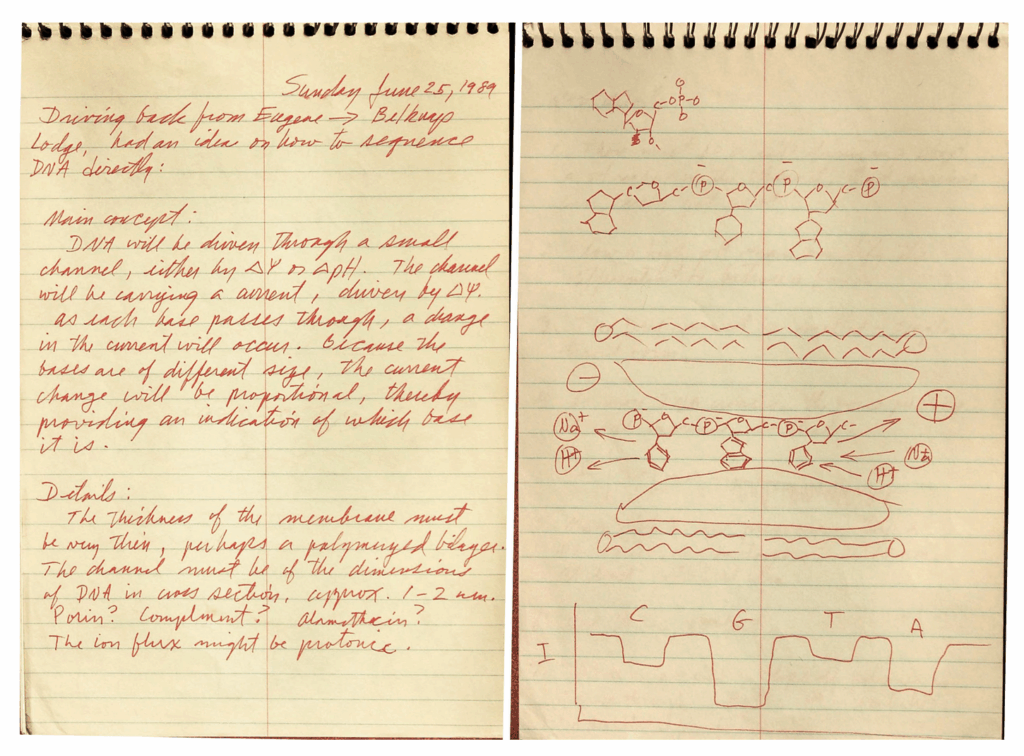 Sunday June 25, 1989
Driving back from Eugene → Belknap
Lodge, had an idea on how to sequence
DNA directly:
Main concept:
DNA will be driven through a small
channel, either by ΔΨ or ΔpH. The channel
will be carrying a current, driven by ΔΨ.
As each base passes through, a change
in the current will occur. Because the
bases are of different size, the current
change will be proportional, thereby
providing an indication of which base
it is.
Details:
The thickness of the membrane must
be very thin, perhaps a polymerized bilayer.
The channel must be of the dimensions
of DNA in cross section, approx. 1-2 nm.
Porin? Compliment? Alamethicin?
The ion flux might be protonic.
O
C-O-P-O
O
O
O
C O C- P⁻ O C P⁻ O C- P⁻
−
+
Na⁺ P⁻ O C- P⁻ O C- P⁻ O C-
H⁺ Na⁺
H⁺
C G T A
I